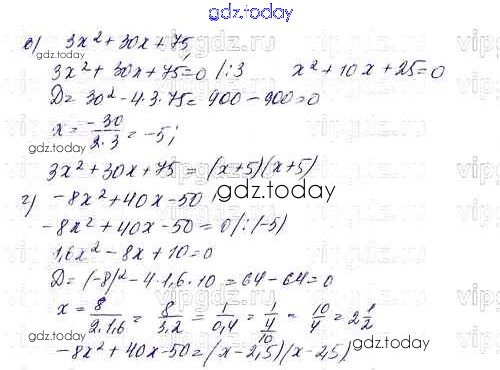 gdz.today
в) 3x² + 30x + 75;
3x² + 30x + 75 = 0 /:3 x² + 10x + 25 = 0
D = 30² - 4·3·75 = 900 - 900 = 0
x = -30/2·3 = -5;
gdz.today
3x² + 30x + 75 = (x+5)(x+5)
г) -8x² + 40x - 50 gdz.today
-8x² + 40x - 50 = 0 /:(-5)
1,6x² - 8x + 10 = 0
D = (-8)² - 4·1,6·10 = 64 - 64 = 0
x = 8/2·1,6 = 8/3,2 = 1/0,4 = 1/4/10 = 10/4 = 2 1/2
gdz.today
-8x² + 40x - 50 = (x - 2,5)(x - 2,5)